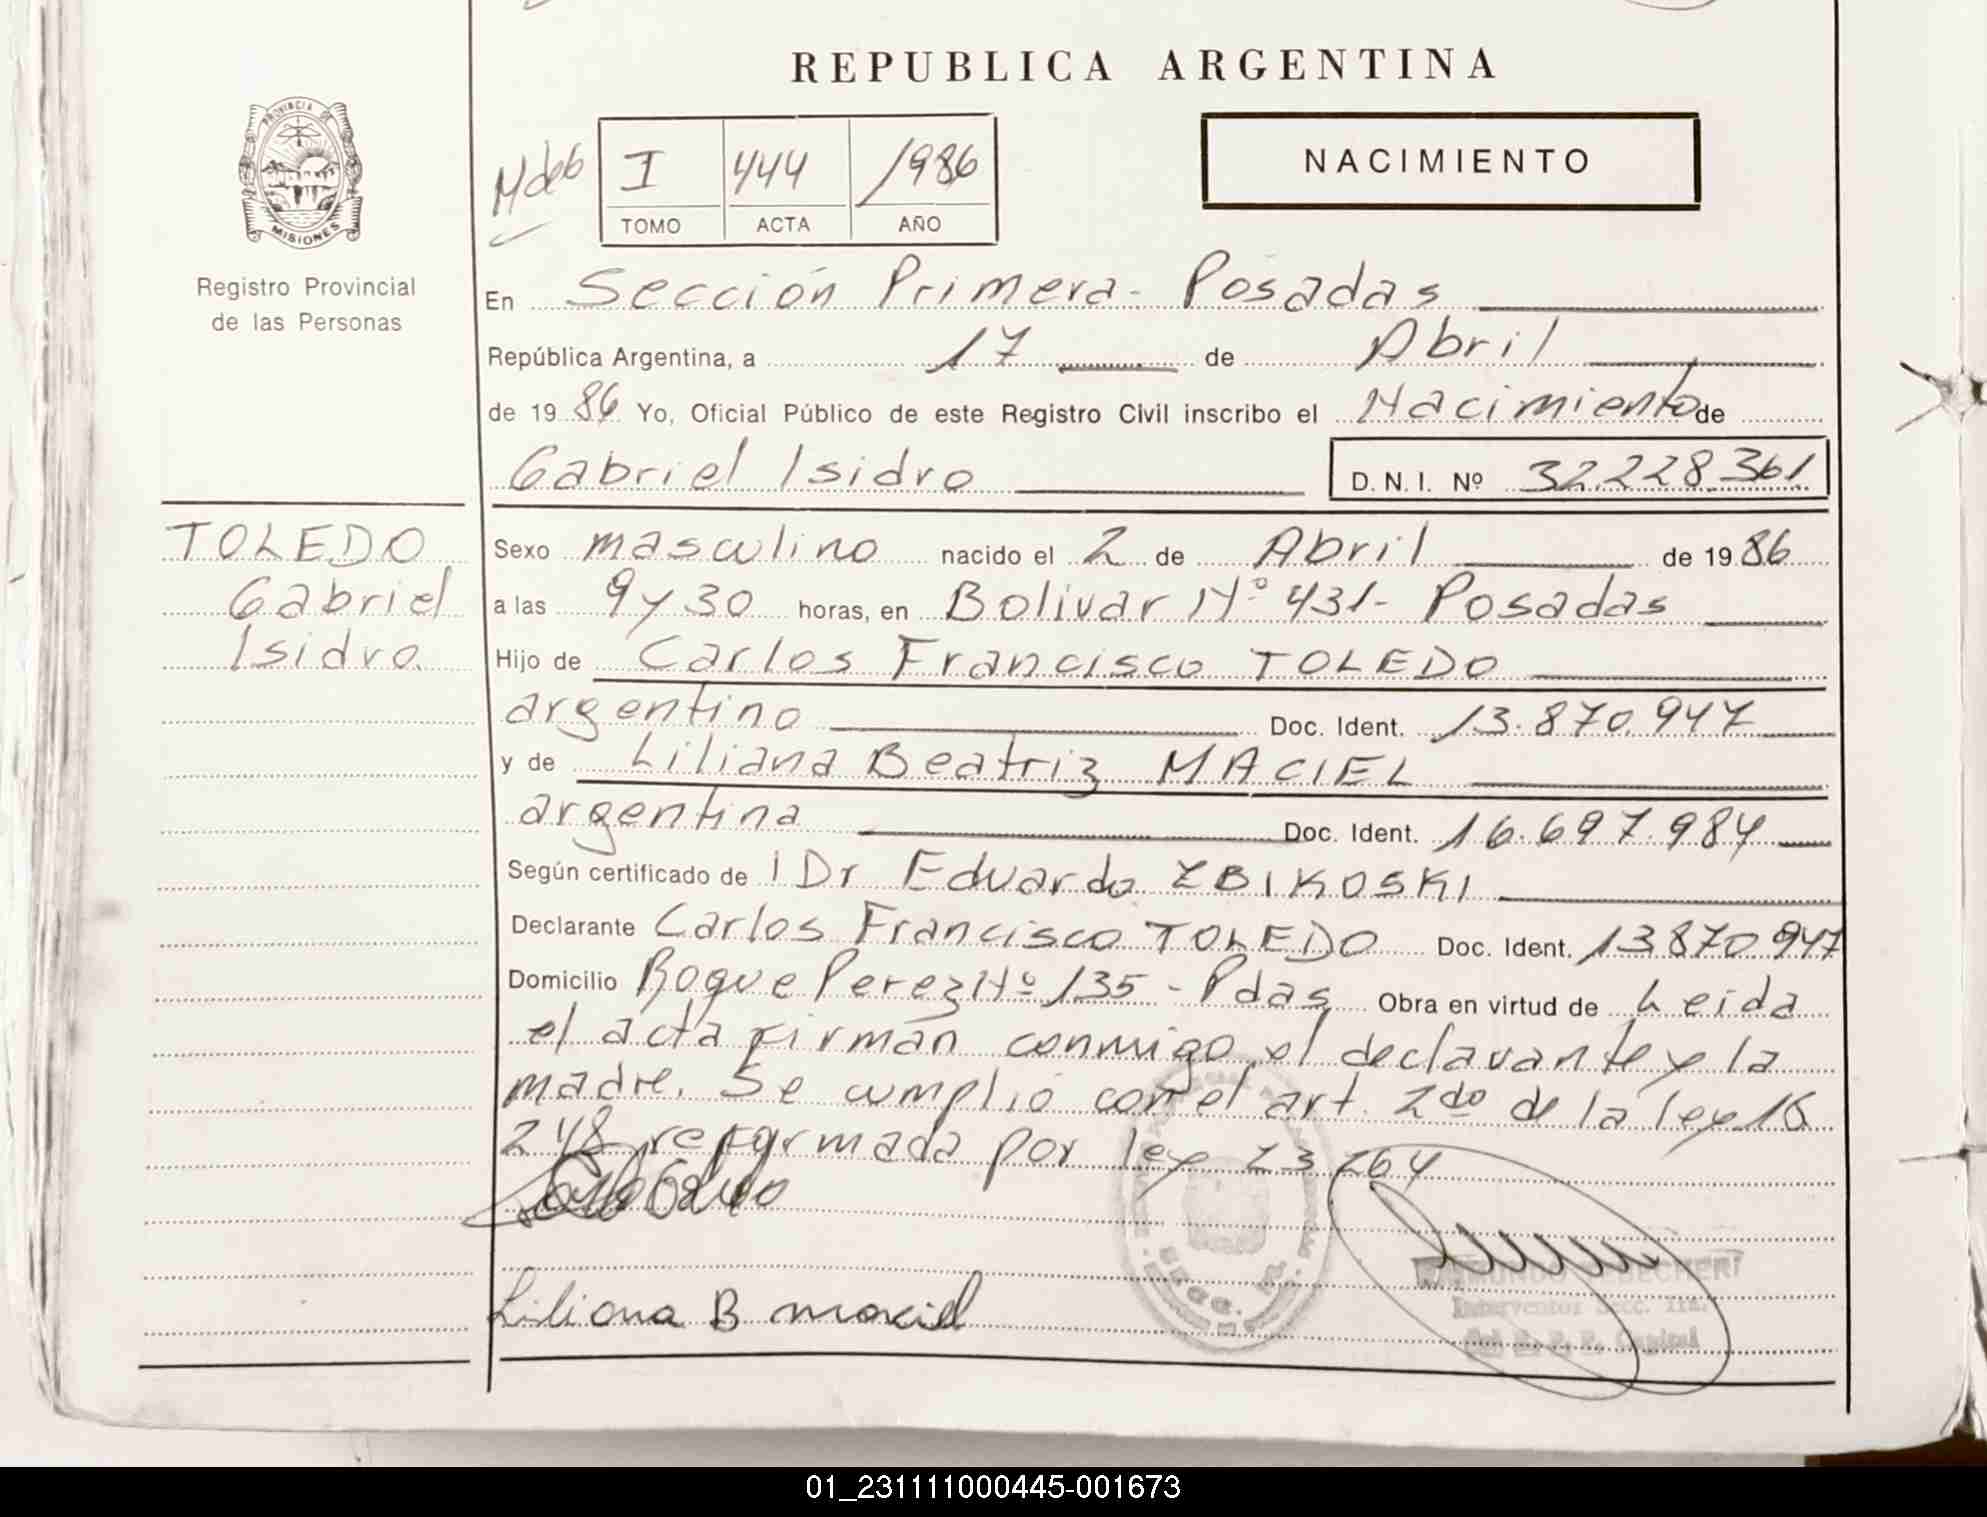 REPUBLICA ARGENTINA
PROVINCIA DE
MISIONES
Registro Provincial
de las Personas
I 444 1986
TOMO ACTA AÑO
NACIMIENTO
En Sección Primera - Posadas
República Argentina, a 17 de Abril
de 19 86 Yo, Oficial Público de este Registro Civil inscribo el Nacimiento de
Gabriel Isidro D. N. I. Nº 32.228.361
TOLEDO
Gabriel
Isidro
Sexo masculino nacido el 2 de Abril de 19 86
a las 9 y 30 horas, en Bolivar Nº 431- Posadas
Hijo de Carlos Francisco TOLEDO
argentino Doc. Ident. 13.870.947
y de Liliana Beatriz MACIEL
argentina Doc. Ident. 16.697.984
Según certificado de 1 Dr Eduardo ZBIKOSKI
Declarante Carlos Francisco TOLEDO Doc. Ident. 13870947
Domicilio Roque Perez Nº 135 - Pdas Obra en virtud de Leida
el acta firman conmigo el declarante y la
madre. Se cumplió con el art. 2do de la ley 18
248 reformada por ley 23264
Liliana B Maciel
Interventor Secc. 1ra.
01_231111000445-001673